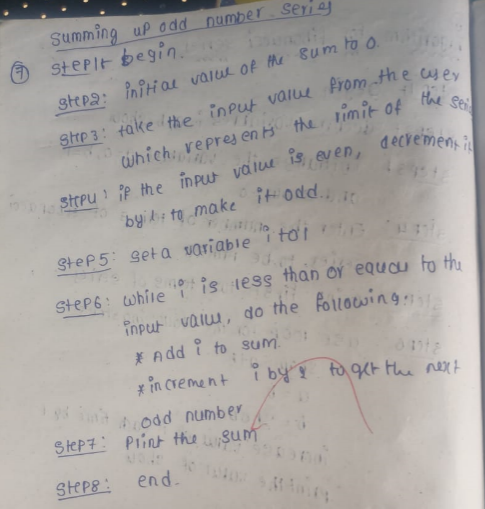 Summing up odd number series
⑦ Step1: begin.
Step2: initial value of the sum to 0.
Step3: take the input value from the user
which represents the limit of the seri
Step4: if the input value is even, decrement it
by 1, to make it odd.
Step5: set a variable i to 1
Step6: while i is less than or equal to the
input value, do the following:
* Add i to sum.
* increment i by 2 to get the next
odd number
Step7: Print the sum
Step8: end.